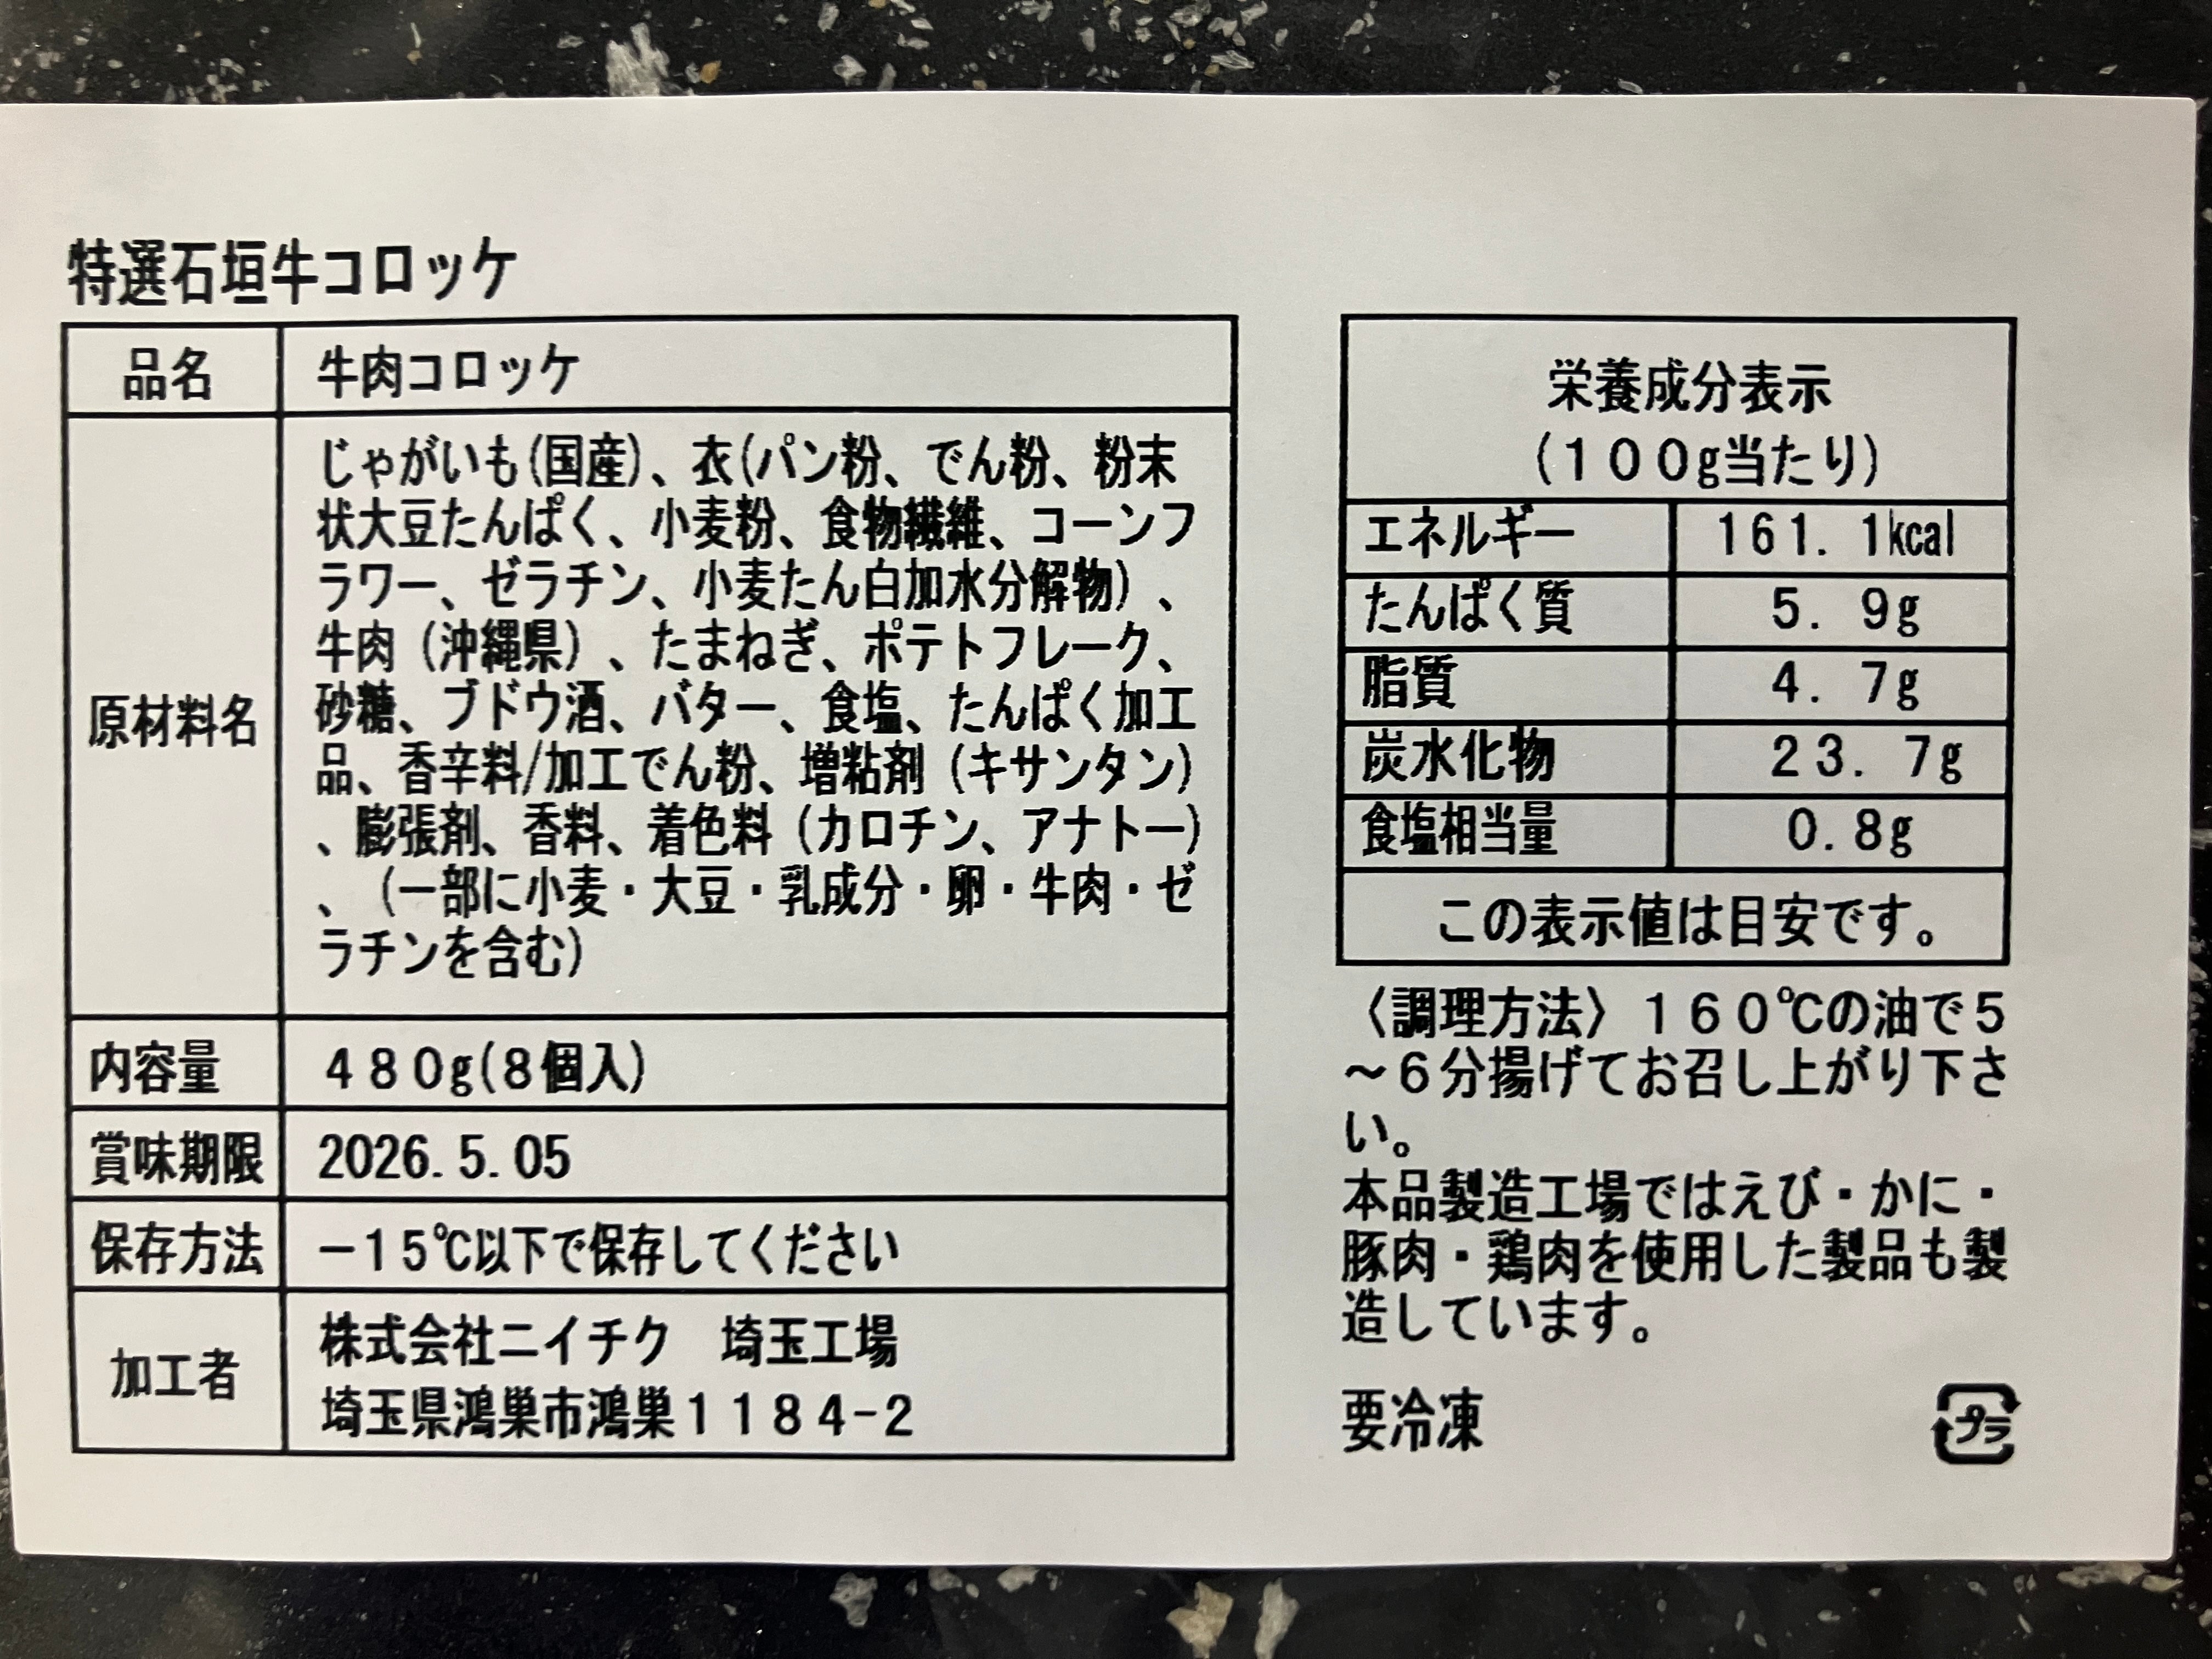 特選石垣牛コロッケ
品名
牛肉コロッケ
原材料名
じゃがいも(国産)、衣(パン粉、でん粉、粉末
状大豆たんぱく、小麦粉、食物繊維、コーンフ
ラワー、ゼラチン、小麦たん白加水分解物)、
牛肉(沖縄県)、たまねぎ、ポテトフレーク、
砂糖、ブドウ酒、バター、食塩、たんぱく加工
品、香辛料/加工でん粉、増粘剤(キサンタン)
、膨張剤、香料、着色料(カロチン、アナトー)
、(一部に小麦・大豆・乳成分・卵・牛肉・ゼ
ラチンを含む)
内容量
480g(8個入)
賞味期限
2026.5.05
保存方法
−15℃以下で保存してください
加工者
株式会社ニイチク 埼玉工場
埼玉県鴻巣市鴻巣1184-2
栄養成分表示
(100g当たり)
エネルギー 161.1kcal
たんぱく質 5.9g
脂質 4.7g
炭水化物 23.7g
食塩相当量 0.8g
この表示値は目安です。
〈調理方法〉160℃の油で5
～6分揚げてお召し上がり下さ
い。
本品製造工場ではえび・かに・
豚肉・鶏肉を使用した製品も製
造しています。
要冷凍
プラ